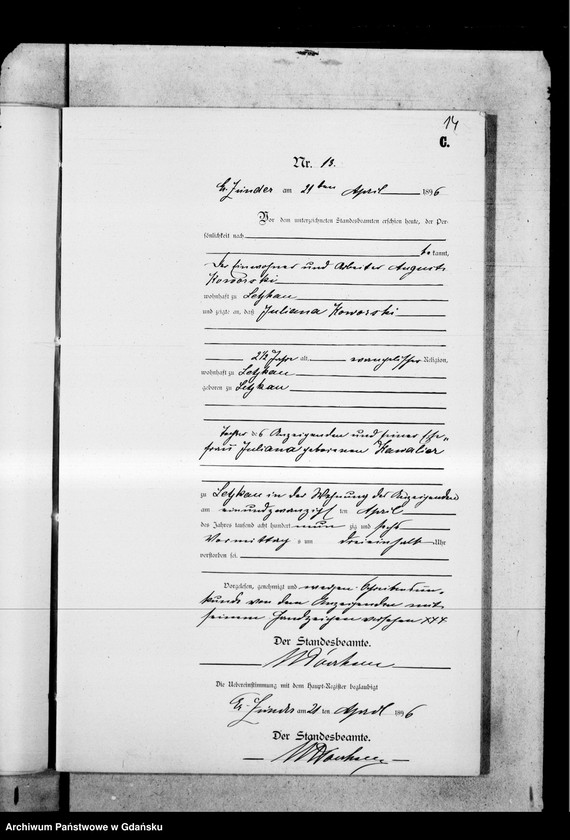 14
C.
Nr. 13.
Gr. Zünder am 21 ten April 1896
Vor dem unterzeichneten Standesbeamten erschien heute, der Per-
sönlichkeit nach
be kannt,
der Einwohner und Arbeiter August
Koworski
wohnhaft zu Letzkau
und zeigte an, daß Juliana Koworski
2½ Jahre alt, evangelischer Religion,
wohnhaft zu Letzkau
geboren zu Letzkau
Tochter des Anzeigenden und seiner Ehe-
frau Juliana geborenen Kawalier
zu Letzkau in der Wohnung des Anzeigenden
am einundzwanzigsten April
des Jahres tausend acht hundert neun zig und sechs
Vormittag s um dreieinhalb Uhr
verstorben sei.
Vorgelesen, genehmigt und wegen Schreibensun-
kunde von dem Anzeigenden mit
seinem Handzeichen versehen +++
Der Standesbeamte.
Die Uebereinstimmung mit dem Haupt-Register beglaubigt
Gr. Zünder am 21 ten April 1896
Der Standesbeamte.
Archiwum Państwowe w Gdańsku